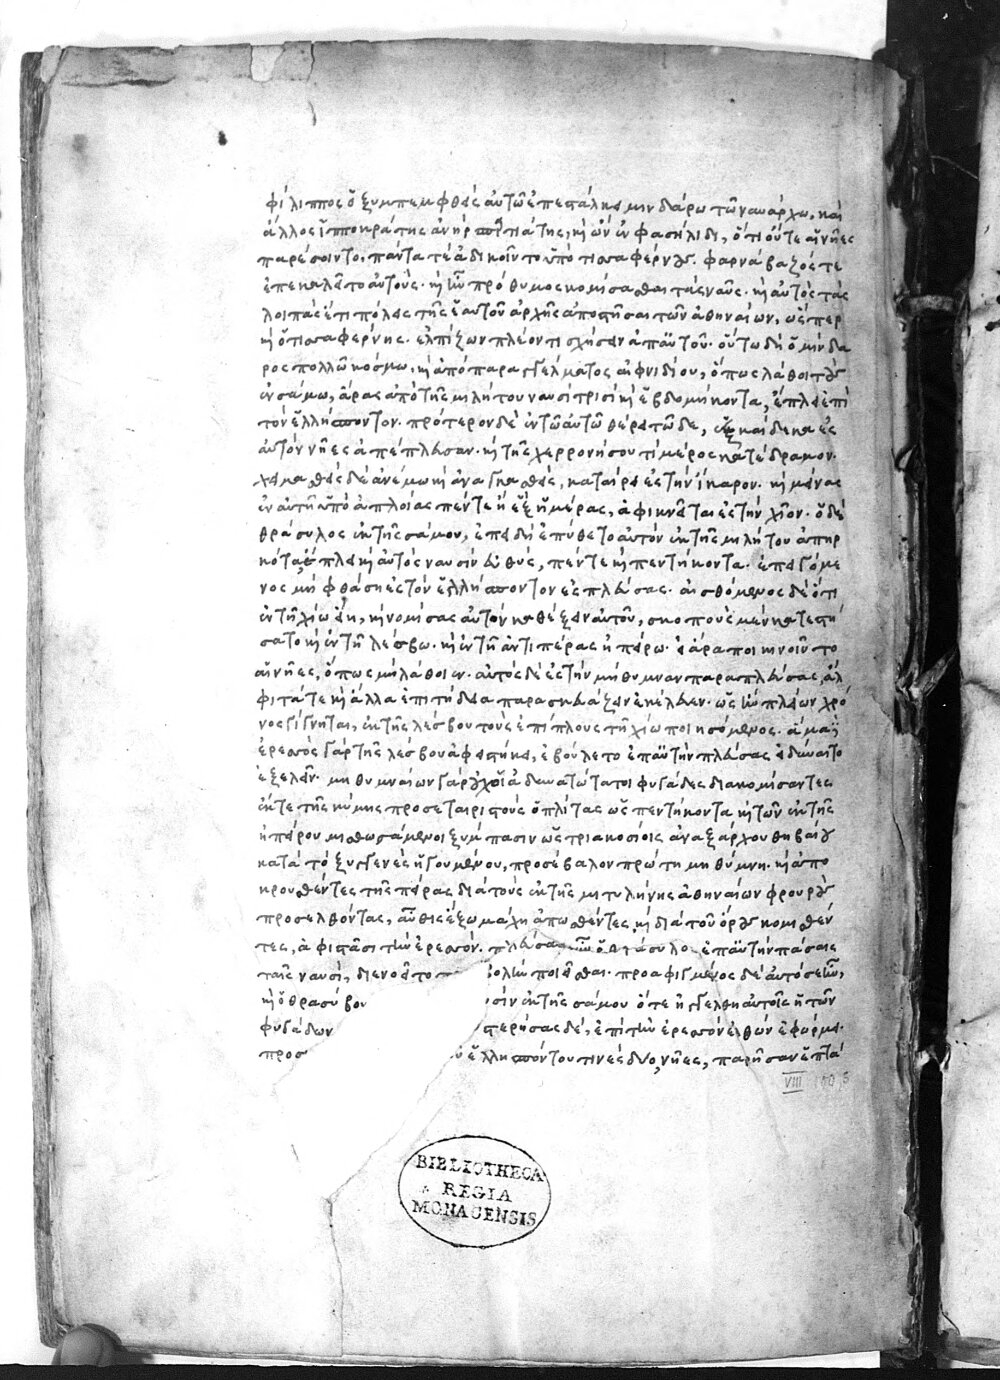 φίλιππος ὁ ξυμπεμφθεὶς αὐτῶ ἐπεστάλκει μινδάρω τῶ ναυάρχω, καὶ
ἄλλος ἱπποκράτης ἀνὴρ σπαρτιάτης, κὶ ὢν ἐν φασήλιδι, ὅτι οὔτε αἱ νῆες
παρέσοιντο, πάντα τὲ ἀδικοῖντο ὑπὸ τισαφέρνους. φαρνάβαζός τε
ἐπεκαλεῖτο αὐτοὺς. κὶ ἦν πρόθυμος κομίσασθαι τὰς ναῦς. κὶ αὐτὸς τὰς
λοιπὰς ἔτι πόλεις τῆς ἑαυτοῦ ἀρχῆς ἀποστῆσαι τῶν ἀθηναίων, ὥσπερ
κὶ ὁ τισαφέρνης. ἐλπίζων πλέον τι σχήσειν ἀπ' αὐτοῦ. οὕτω δὴ ὁ μίνδα
ρος πολλῶ κόσμω, κὶ ἀπὸ παραγγέλματος αἰφνιδίου, ὅπως λάθοι τοὺς
ἐν σάμω, ἄρας ἀπὸ τῆς μιλήτου ναυσὶ τρισὶ κὶ ἑβδομήκοντα, ἔπλει ἐπὶ
τὸν ἑλλήσποντον. πρότερον δὲ ἐν τῶ αὐτῶ θέρει τῶδε, ἑκκαίδεκα ἐς
αὐτὸν νῆες ἀπέπλευσαν. κὶ τῆς χερρονήσου τὶ μέρος κατέδραμον.
χειμασθεὶς δὲ ἀνέμω κὶ ἀναγκασθεὶς, καταίρει ἐς τὴν ἴκαρον. κὶ μείνας
ἐν αὐτῆ ὑπὸ ἀπλοίας πέντε ἢ ἓξ ἡμέρας, ἀφικνεῖται ἐς τὴν χῖον. ὁ δὲ
θράσυλος ἐκ τῆς σάμου, ἐπειδὴ ἐπύθετο αὐτὸν ἐκ τῆς μιλήτου ἀπηρ
κότα, ἔπλει κὶ αὐτὸς ναυσὶν εὐθὺς, πέντε κὶ πεντήκοντα. ἐπειγόμε
νος μὴ φθάση ἐς τὸν ἑλλήσποντον ἐσπλεύσας. αἰσθόμενος δὲ ὅτι
ἐν τῆ χίω εἴη, κὶ νομίσας αὐτὸν καθέξειν αὐτοῦ, σκοποὺς μὲν κατεστή
σατο κὶ ἐν τῆ λέσβω. κὶ ἐν τῆ ἀντιπέρας ἠπείρω. εἰ ἄρα ποι κινοῖντο
αἱ νῆες, ὅπως μὴ λάθοιεν. αὐτὸς δὲ ἐς τὴν μήθυμναν παραπλεύσας, ἄλ
φιτά τε κὶ ἄλλα ἐπιτήδεια παρασκευάζειν ἐκέλευεν. ὡς ἢν πλείων χρό
νος γίγνηται, ἐκ τῆς λέσβου τοὺς ἐπίπλους τῆ χίω ποιησόμενος. ἅμα δὲ
ἔρεσος γὰρ τῆς λέσβου ἀφειστήκει, ἐβούλετο ἐπ' αὐτὴν πλεύσας εἰ δύναιτο
ἐξελεῖν. μηθυμναίων γὰρ οὐχ οἱ ἀδυνατώτατοι φυγάδες διακομίσαντες
ἔκ τε τῆς κύμης προσεταιριστοὺς ὁπλίτας ὡς πεντήκοντα κὶ τῶν ἐκ τῆς
ἠπείρου μισθωσάμενοι ξύμπασιν ὡς τριακοσίοις ἀναξάρχου θηβαίου
κατὰ τὸ ξυγγενὲς ἡγουμένου, προσέβαλον πρώτη μηθύμνη. κὶ ἀπο
κρουσθέντες τῆς πείρας διὰ τοὺς ἐκ τῆς μιτυλήνης ἀθηναίων φρουροὺς
προσελθόντας, αὖθις ἔξω μάχη ἀπωσθέντες κὶ διὰ τοῦ ὄρους κομισθέν
τες, ἀφιστᾶσι τὴν ἔρεσον. πλεύσας οὖν ὁ θράσυλος ἐπ' αὐτὴν πάσαις
ταῖς ναυσὶ, διενοεῖτο βολὴν ποιεῖσθαι. προαφιγμένος δὲ αὐτόσε ἦν,
κὶ ὁ θρασύβου σὶν ἐκ τῆς σάμου ὅτε ἠγγέλθη αὐτοῖς ἡ τῶν
φυγάδων στερήσας δὲ, ἐπὶ τὴν ἔρεσον ἐλθὼν ἐφώρμει.
προσ ἑλλησπόντου τινὲς δύο, νῆες, παρῆσαν ἐπ' οἴ
VIII 100 5
BIBLIOTHECA
REGIA
MONACENSIS